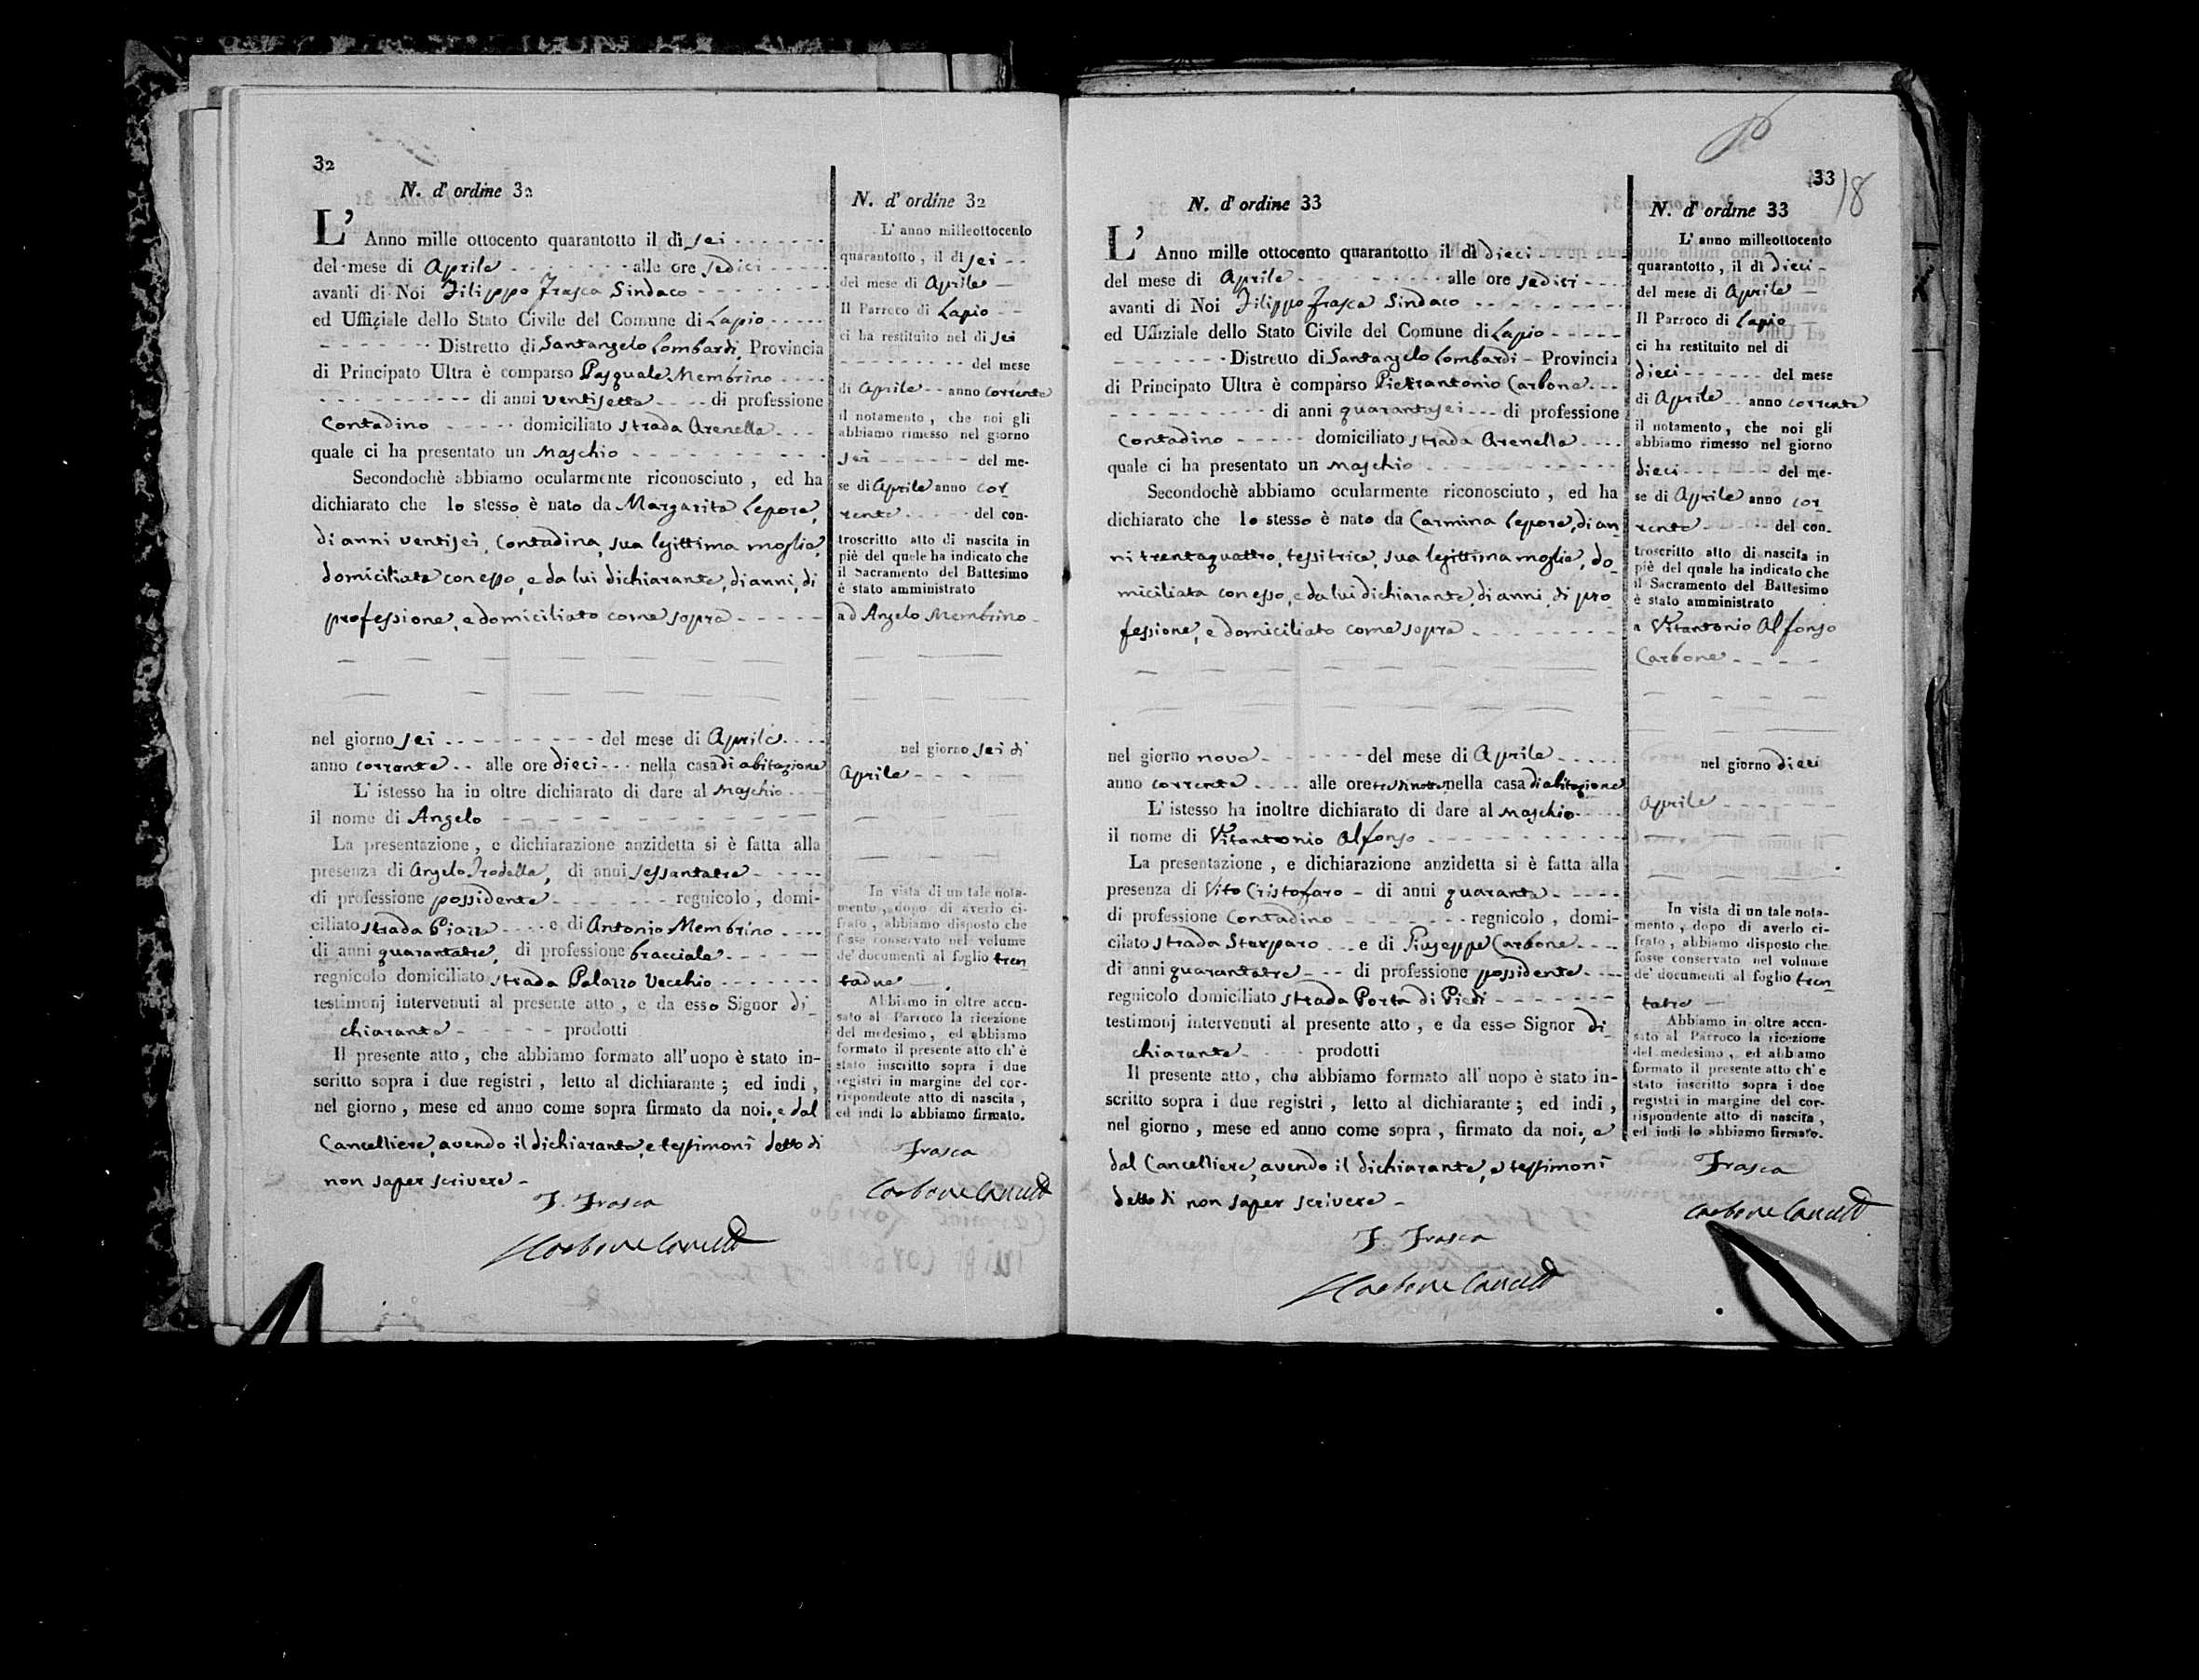 32
N. d'ordine 32
L'Anno mille ottocento quarantotto il dì sei
del mese di Aprile alle ore sedici
avanti di Noi Filippo Frasca Sindaco
ed Uffiziale dello Stato Civile del Comune di Lapio
Distretto di Santangelo Lombardi Provincia
di Principato Ultra è comparso Pasquale Membrino
di anni ventisette di professione
Contadino domiciliato strada Arenella
quale ci ha presentato un Maschio
Secondochè abbiamo ocularmente riconosciuto, ed ha
dichiarato che lo stesso è nato da Margarita Lepore,
di anni ventisei, Contadina, sua legittima moglie,
domiciliata con esso, e da lui dichiarante, di anni, di
professione, e domiciliato come sopra
nel giorno sei del mese di Aprile
anno corrente alle ore dieci nella casa di abitazione
L'istesso ha in oltre dichiarato di dare al Maschio
il nome di Angelo
La presentazione, e dichiarazione anzidetta si è fatta alla
presenza di Angelo Trodella, di anni sessantatre
di professione possidente regnicolo, domi-
ciliato strada Piazza e di Antonio Membrino
di anni quarantatre, di professione bracciale
regnicolo domiciliato strada Palazzo Vecchio
testimonj intervenuti al presente atto, e da esso Signor di
chiarante prodotti
Il presente atto, che abbiamo formato all'uopo è stato in-
scritto sopra i due registri, letto al dichiarante; ed indi,
nel giorno, mese ed anno come sopra firmato da noi, e dal
Cancelliere, avendo il dichiarante, e testimoni detto di
non saper scrivere
F. Frasca
Carbone Cancell
N. d'ordine 32
L'anno milleottocento
quarantotto, il dì sei
del mese di Aprile
Il Parroco di Lapio
ci ha restituito nel dì sei
del mese
di Aprile anno corrente
il notamento, che noi gli
abbiamo rimesso nel giorno
sei del me-
se di Aprile anno cor
rente del con-
troscritto atto di nascita in
piè del quele ha indicato che
il Sacramento del Battesimo
è stato amministrato
ad Angelo Membrino
nel giorno sei di
Aprile
In vista di un tale nota-
mento, dopo di averlo ci-
frato, abbiamo disposto che
fosse conservato nel volume
de' documenti al foglio tren
tadue
Abbiamo in oltre accu-
sato al Parroco la ricezione
del medesimo, ed abbiamo
formato il presente atto ch'è
stato inscritto sopra i due
registri in margine del cor-
rispondente atto di nascita,
ed indi lo abbiamo firmato.
Frasca
Carbone Cancell
33
18
N. d'ordine 33
L'Anno mille ottocento quarantotto il dì dieci
del mese di Aprile alle ore sedici
avanti di Noi Filippo Frasca Sindaco
ed Uffiziale dello Stato Civile del Comune di Lapio
Distretto di Santangelo Lombardi Provincia
di Principato Ultra è comparso Pietrantonio Carbone
di anni quarantasei di professione
Contadino domiciliato strada Arenella
quale ci ha presentato un Maschio
Secondochè abbiamo ocularmente riconosciuto, ed ha
dichiarato che lo stesso è nato da Carmina Lepore, di an
ni trentaquattro, tessitrice, sua legittima moglie, do
miciliata con esso, e da lui dichiarante, di anni, di pro
fessione, e domiciliato come sopra
nel giorno nove del mese di Aprile
anno corrente alle ore tre di notte nella casa di abitazione
L'istesso ha inoltre dichiarato di dare al Maschio
il nome di Vitantonio Alfonso
La presentazione, e dichiarazione anzidetta si è fatta alla
presenza di Vito Cristofaro di anni quaranta
di professione Contadino regnicolo, domi-
cilato strada Sterparo e di Giuseppe Carbone
di anni quarantatre di professione possidente
regnicolo domiciliato strada Porta di Piedi
testimonj intervenuti al presente atto, e da esso Signor di
chiarante prodotti
Il presente atto, che abbiamo formato all'uopo è stato in-
scritto sopra i due registri, letto al dichiarante; ed indi,
nel giorno, mese ed anno come sopra, firmato da noi, e
dal Cancelliere, avendo il dichiarante, e testimoni
detto di non saper scrivere
F. Frasca
Carbone Cancell
N. d'ordine 33
L'anno milleottocento
quarantotto, il dì dieci
del mese di Aprile
Il Parroco di Lapio
ci ha restituito nel di
dieci del mese
di Aprile anno corrente
il notamento, che noi gli
abbiamo rimesso nel giorno
dieci del me-
se di Aprile anno cor
rente del con-
troscritto atto di nascita in
piè del quale ha indicato che
il Sacramento del Battesimo
è stato amministrato
a Vitantonio Alfonso
Carbone
nel giorno dieci
Aprile
In vista di un tale nota-
mento, dopo di averlo ci-
frato, abbiamo disposto che
fosse conservato nel volume
de' documenti al foglio tren
tatre
Abbiamo in oltre accu-
sato al Parroco la ricezione
del medesimo, ed abbiamo
formato il presente atto ch'e
stato inscritto sopra i due
registri in margine del cor-
rispondente atto di nascita,
ed indi lo abbiamo firmato.
Frasca
Carbone Cancell